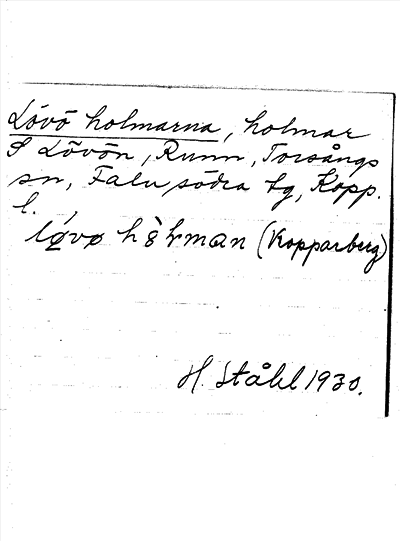 Lövö holmarna, holmar
S Lövön, Runn, Torsångs
sn, Falu södra tg, Kopp.
l.
(Kopparberg)
H. Ståhl 1930.